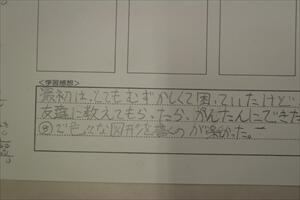 <学習感想>
最初は、とてもむずかしくて困っていたけど
友達に教えてもらったら、かんたんにできた
で色々な図形を書くのが楽しかった。